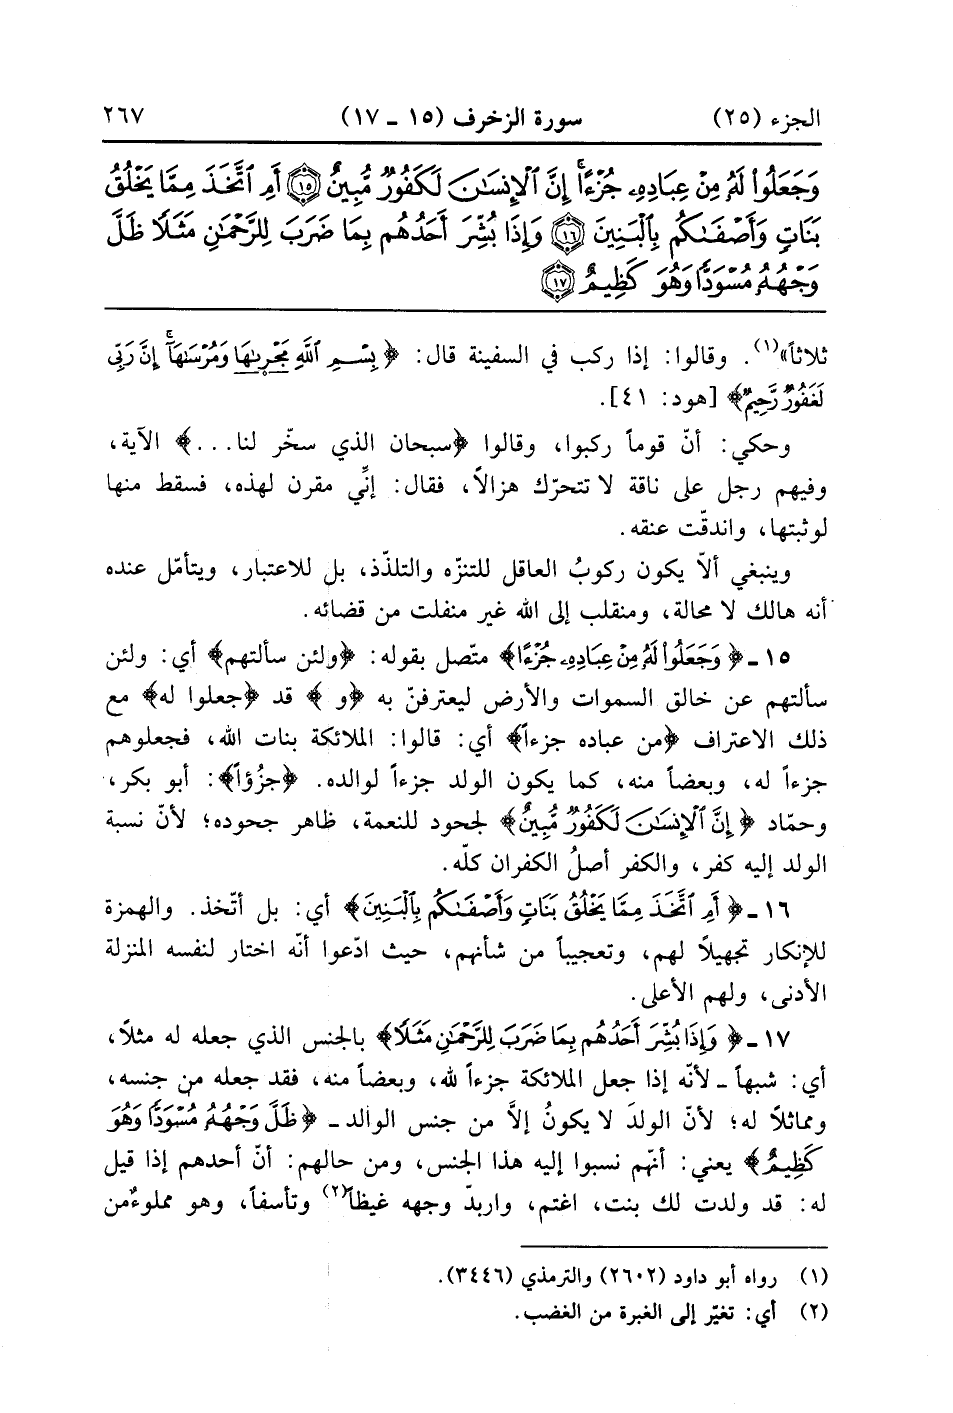 الجزء (٢٥) سورة الزخرف (١٥ ـ ١٧) ٢٦٧
وَجَعَلُوا۟ لَهُۥ مِنْ عِبَادِهِۦ جُزْءًا ۚ إِنَّ ٱلْإِنسَـٰنَ لَكَفُورٌ مُّبِينٌ ١٥ أَمِ ٱتَّخَذَ مِمَّا يَخْلُقُ
بَنَاتٍ وَأَصْفَىٰكُم بِٱلْبَنِينَ ١٦ وَإِذَا بُشِّرَ أَحَدُهُم بِمَا ضَرَبَ لِلرَّحْمَـٰنِ مَثَلًا ظَلَّ
وَجْهُهُۥ مُسْوَدًّا وَهُوَ كَظِيمٌ ١٧
ثلاثاً»(١). وقالوا: إذا ركب في السفينة قال: ﴿بِسْمِ ٱللَّهِ مَجْر۪ىٰهَا وَمُرْسَىٰهَآ ۚ إِنَّ رَبِّى
لَغَفُورٌ رَّحِيمٌ﴾ [هود: ٤١].
وحكي: أنّ قوماً ركبوا، وقالوا ﴿سبحان الذي سخّر لنا...﴾ الآية،
وفيهم رجل على ناقة لا تتحرّك هزالاً، فقال: إنِّي مقرن لهذه، فسقط منها
لوثبتها، واندقّت عنقه.
وينبغي ألاّ يكون ركوبُ العاقل للتنزّه والتلذّذ، بل للاعتبار، ويتأمّل عنده
أنه هالك لا محالة، ومنقلب إلى الله غير منفلت من قضائه.
١٥ ـ ﴿وَجَعَلُوا۟ لَهُۥ مِنْ عِبَادِهِۦ جُزْءًا﴾ متّصل بقوله: ﴿ولئن سألتهم﴾ أي: ولئن
سألتهم عن خالق السموات والأرض ليعترفنّ به ﴿و﴾ قد ﴿جعلوا له﴾ مع
ذلك الاعتراف ﴿من عباده جزءاً﴾ أي: قالوا: الملائكة بنات الله، فجعلوهم
جزءاً له، وبعضاً منه، كما يكون الولد جزءاً لوالده. ﴿جزُؤاً﴾: أبو بكر،
وحمّاد ﴿إِنَّ ٱلْإِنسَـٰنَ لَكَفُورٌ مُّبِينٌ﴾ لجحود للنعمة، ظاهر جحوده؛ لأنّ نسبة
الولد إليه كفر، والكفر أصلُ الكفران كلّه.
١٦ ـ ﴿أَمِ ٱتَّخَذَ مِمَّا يَخْلُقُ بَنَاتٍ وَأَصْفَىٰكُم بِٱلْبَنِينَ﴾ أي: بل أتّخذ. والهمزة
للإنكار تجهيلاً لهم، وتعجيباً من شأنهم، حيث ادّعوا أنّه اختار لنفسه المنزلة
الأدنى، ولهم الأعلى.
١٧ ـ ﴿وَإِذَا بُشِّرَ أَحَدُهُم بِمَا ضَرَبَ لِلرَّحْمَـٰنِ مَثَلًا﴾ بالجنس الذي جعله له مثلاً،
أي: شبهاً ـ لأنّه إذا جعل الملائكة جزءاً لله، وبعضاً منه، فقد جعله من جنسه،
ومماثلاً له؛ لأنّ الولدَ لا يكونُ إلاَّ من جنس الوالد ـ ﴿ظَلَّ وَجْهُهُۥ مُسْوَدًّا وَهُوَ
كَظِيمٌ﴾ يعني: أنّهم نسبوا إليه هذا الجنس، ومن حالهم: أنّ أحدهم إذا قيل
له: قد ولدت لك بنت، اغتم، واربدّ وجهه غيظاً(٢) وتأسفاً، وهو مملوءٌ من
(١) رواه أبو داود (٢٦٠٢) والترمذي (٣٤٤٦).
(٢) أي: تغيّر إلى الغبرة من الغضب.